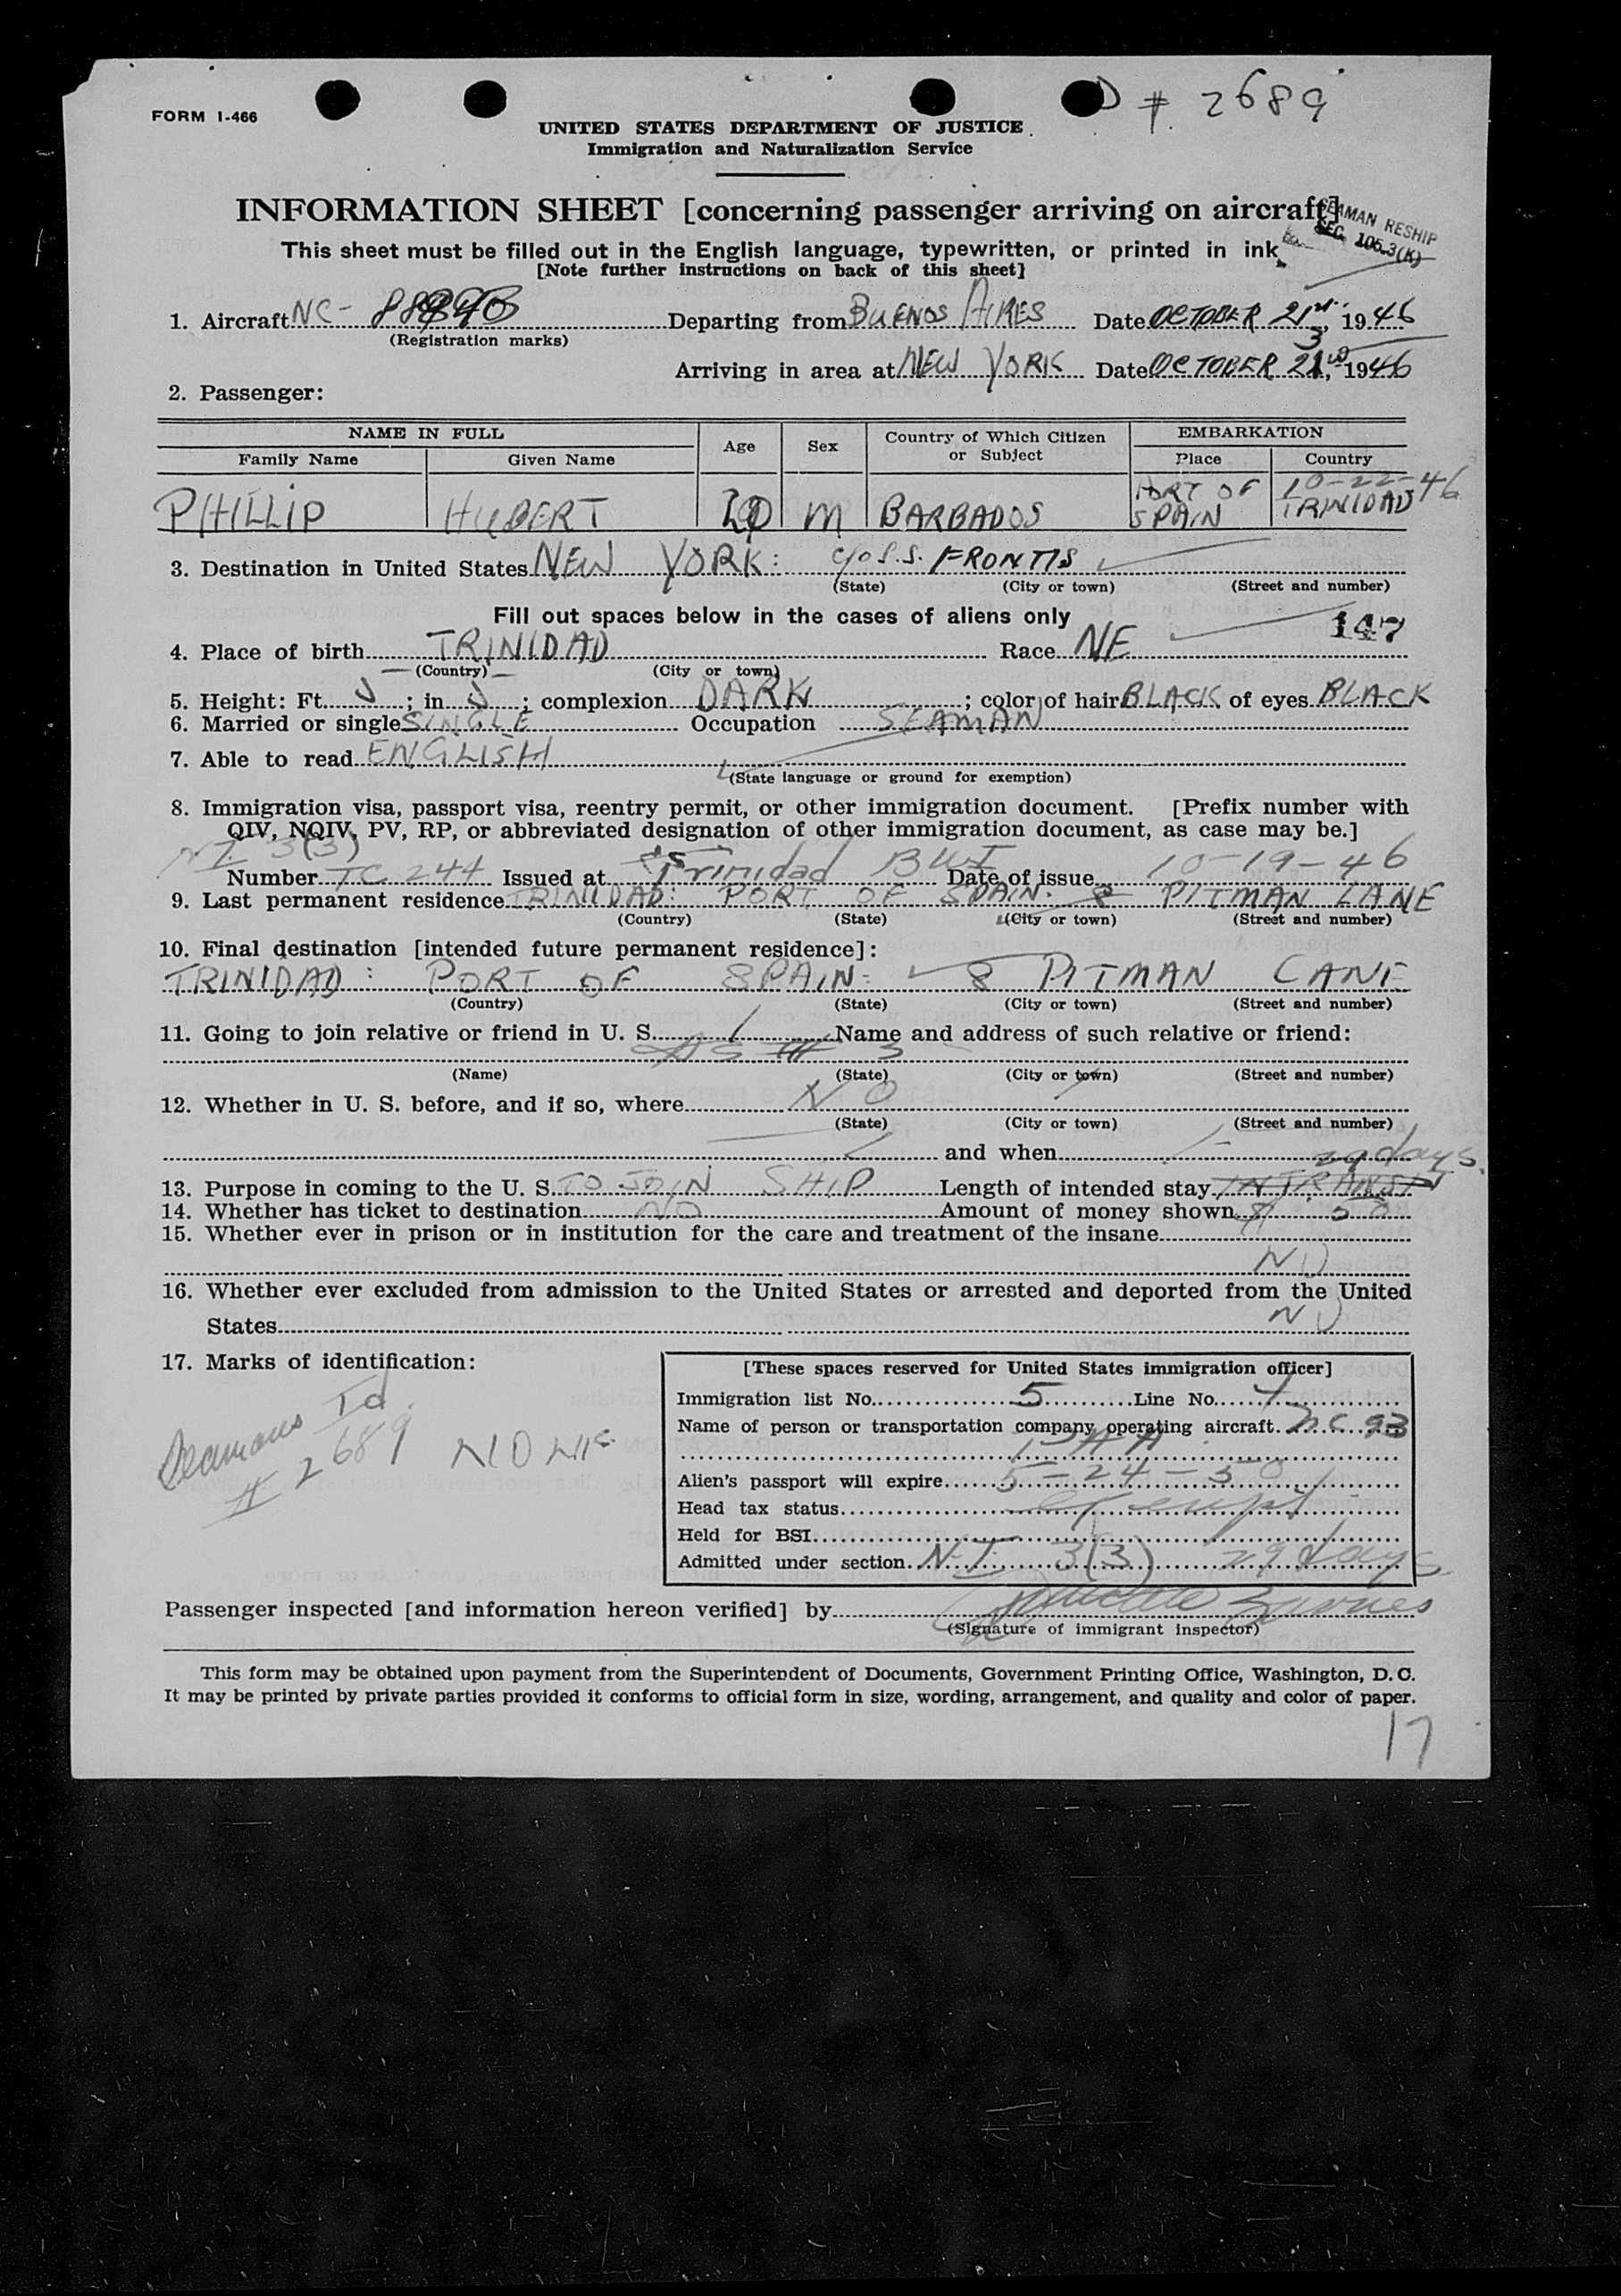 D # 2689
FORM I-466
UNITED STATES DEPARTMENT OF JUSTICE
Immigration and Naturalization Service
INFORMATION SHEET [concerning passenger arriving on aircraft]
SEAMAN RESHIP
SEC. 105.3(K)
This sheet must be filled out in the English language, typewritten, or printed in ink
[Note further instructions on back of this sheet]
1. Aircraft NC- Departing from BUENOS AIRES Date OCTOBER 21st, 1946
(Registration marks)
Arriving in area at NEW YORK Date OCTOBER, 1946
2. Passenger:
NAME IN FULL Age Sex Country of Which Citizen or Subject EMBARKATION
Family Name Given Name Place Country
10-22-46
PHILLIP HUBERT M BARBADOS PORT OF SPAIN TRINIDAD
3. Destination in United States NEW YORK: c/o S.S. FRONTIS
(State) (City or town) (Street and number)
Fill out spaces below in the cases of aliens only
147
4. Place of birth TRINIDAD Race NE
(Country) (City or town)
5. Height: Ft. 5; in. 5; complexion DARK; color of hair BLACK of eyes BLACK
6. Married or single SINGLE Occupation SEAMAN
7. Able to read ENGLISH
(State language or ground for exemption)
8. Immigration visa, passport visa, reentry permit, or other immigration document. [Prefix number with
QIV, NQIV, PV, RP, or abbreviated designation of other immigration document, as case may be.]
3(3)
Number TC 244 Issued at Trinidad BWI Date of issue 10-19-46
9. Last permanent residence TRINIDAD: PORT OF SPAIN: 8 PITMAN LANE
(Country) (State) (City or town) (Street and number)
10. Final destination [intended future permanent residence]:
TRINIDAD: PORT OF SPAIN: 8 PITMAN LANE
(Country) (State) (City or town) (Street and number)
11. Going to join relative or friend in U. S. Name and address of such relative or friend:
AS # 3
(Name) (State) (City or town) (Street and number)
12. Whether in U. S. before, and if so, where NO
(State) (City or town) (Street and number)
and when
29 days.
13. Purpose in coming to the U. S. TO JOIN SHIP Length of intended stay INTRANSIT
14. Whether has ticket to destination NO Amount of money shown $ 50
15. Whether ever in prison or in institution for the care and treatment of the insane
NO
16. Whether ever excluded from admission to the United States or arrested and deported from the United
States NO
17. Marks of identification:
Seamans Id.
# 2689
NONE
[These spaces reserved for United States immigration officer]
Immigration list No. 5 Line No. 7
Name of person or transportation company operating aircraft. N.C. 93
PAA
Alien's passport will expire 5-24-50
Head tax status exempt
Held for BSI
Admitted under section. 3(3) 29 days
Passenger inspected [and information hereon verified] by
(Signature of immigrant inspector)
This form may be obtained upon payment from the Superintendent of Documents, Government Printing Office, Washington, D. C.
It may be printed by private parties provided it conforms to official form in size, wording, arrangement, and quality and color of paper.
17